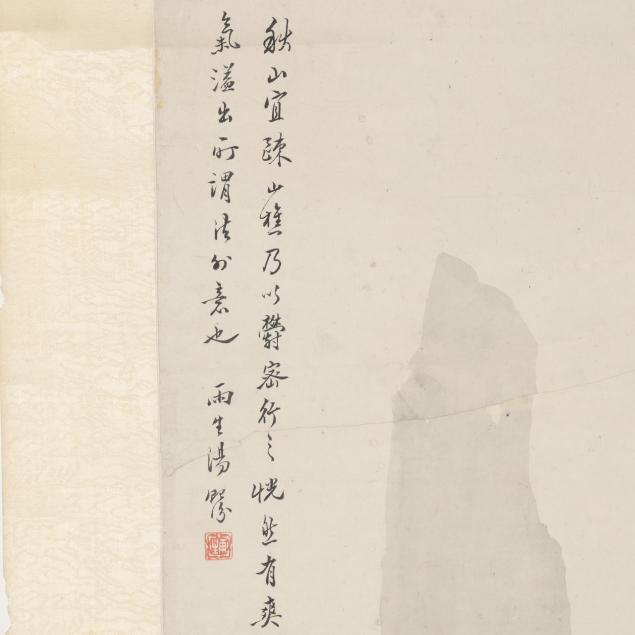 秋山宜疎山樵乃以鬱密行之恍然有爽
氣溢出所謂法外意也 雨生湯貽汾